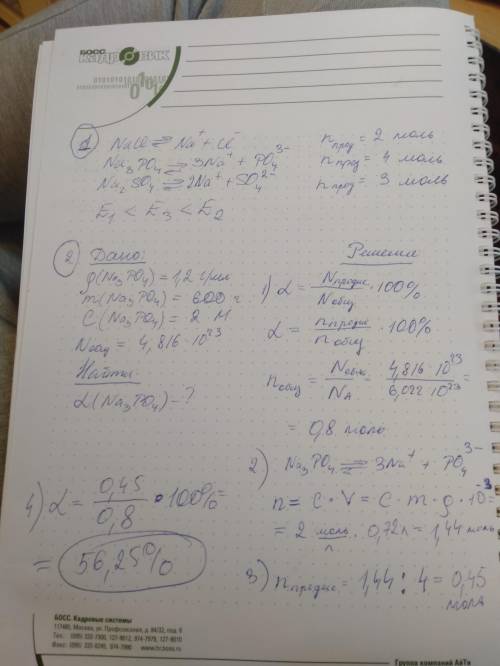 БОСС
КАДРОВИК
①
NaCl ⇌ Na⁺ + Cl⁻
n прод = 2 моль
Na₃PO₄ ⇌ 3Na⁺ + PO₄³⁻
n прод = 4 моль
Na₂SO₄ ⇌ 2Na⁺ + SO₄²⁻
n прод = 3 моль
E₁ < E₃ < E₂
② Дано:
ρ(Na₃PO₄) = 1,2 г/мл
m(Na₃PO₄) = 600 г
C(Na₃PO₄) = 2 М
Nобщ = 4,816 · 10²³
Найти:
α(Na₃PO₄) - ?
Решение
1) α = Nпродис / Nобщ · 100%
α = nпродис / nобщ · 100%
nобщ = Nобщ / NA = 4,816 · 10²³ / 6,022 · 10²³ =
= 0,8 моль
2) Na₃PO₄ ⇌ 3Na⁺ + PO₄³⁻
n = C · V = C · m · ρ · 10⁻³ =
= 2 моль/л · 0,72л = 1,44 моль
3) nпродис = 1,44 : 4 = 0,45 моль
4) α = 0,45 / 0,8 · 100% =
= 56,25%
БОСС. Кадровые системы
117480, Москва, ул. Профсоюзная, д. 84/32, под. 6
Группа компаний АйТи